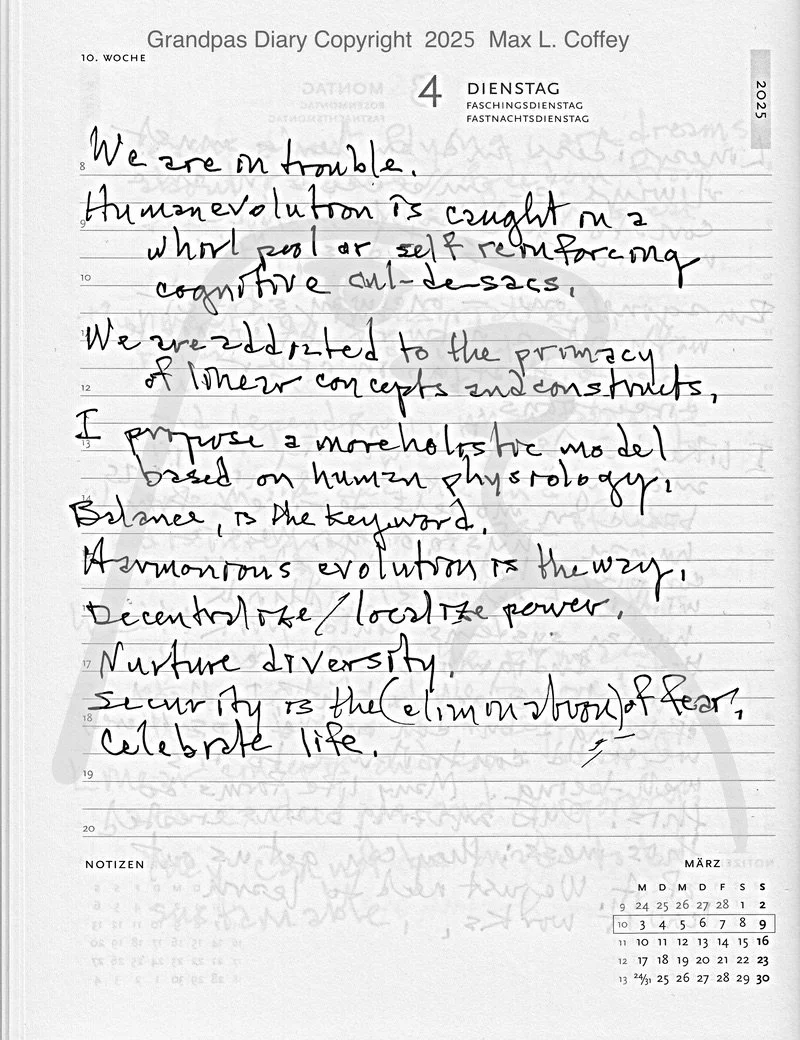 Grandpas Diary Copyright 2025 Max L. Coffey
10. WOCHE
4 DIENSTAG
FASCHINGSDIENSTAG
FASTNACHTSDIENSTAG
2025
8 We are in trouble.
9 Human evolution is caught in a
whirl pool or self reinforcing
10 cognitive cul-de-sacs.
We are addicted to the primacy
12 of linear concepts and constructs.
I propose a more holistic model
13
based on human physiology.
14
Balance, is the key word.
Harmonious evolution is the way.
Decentralize/localize power.
17 Nurture diversity.
Security is the (elimination) of fear.
18
Celebrate life.
19
20
NOTIZEN
MÄRZ
M D M D F S S
9 24 25 26 27 28 1 2
10 3 4 5 6 7 8 9
11 10 11 12 13 14 15 16
12 17 18 19 20 21 22 23
13 24/31 25 26 27 28 29 30